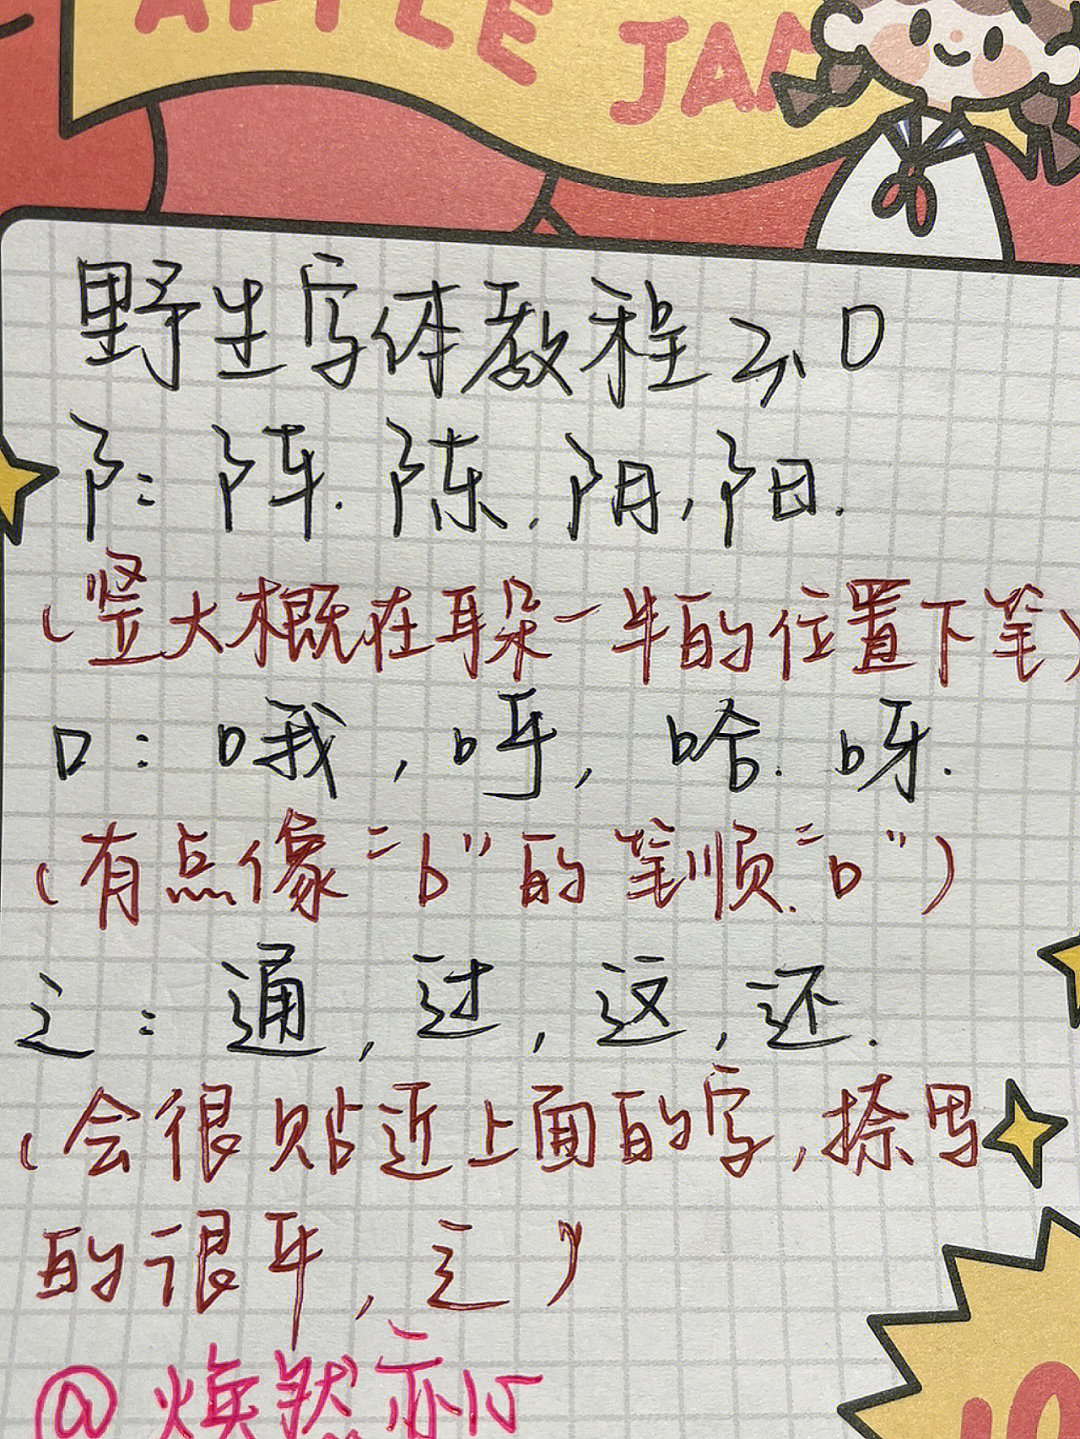 APPLE JAM
野生字体教程2.0
阝:阵.陈.阴,阳.
(竖大概在耳朵一半的位置下笔)
口:哦,呼,哈.呀.
(有点像“b”的笔顺.“b”)
辶:通,过,这,还.
(会很贴近上面的字,捺写
的很平,辶)
@焕然亦心